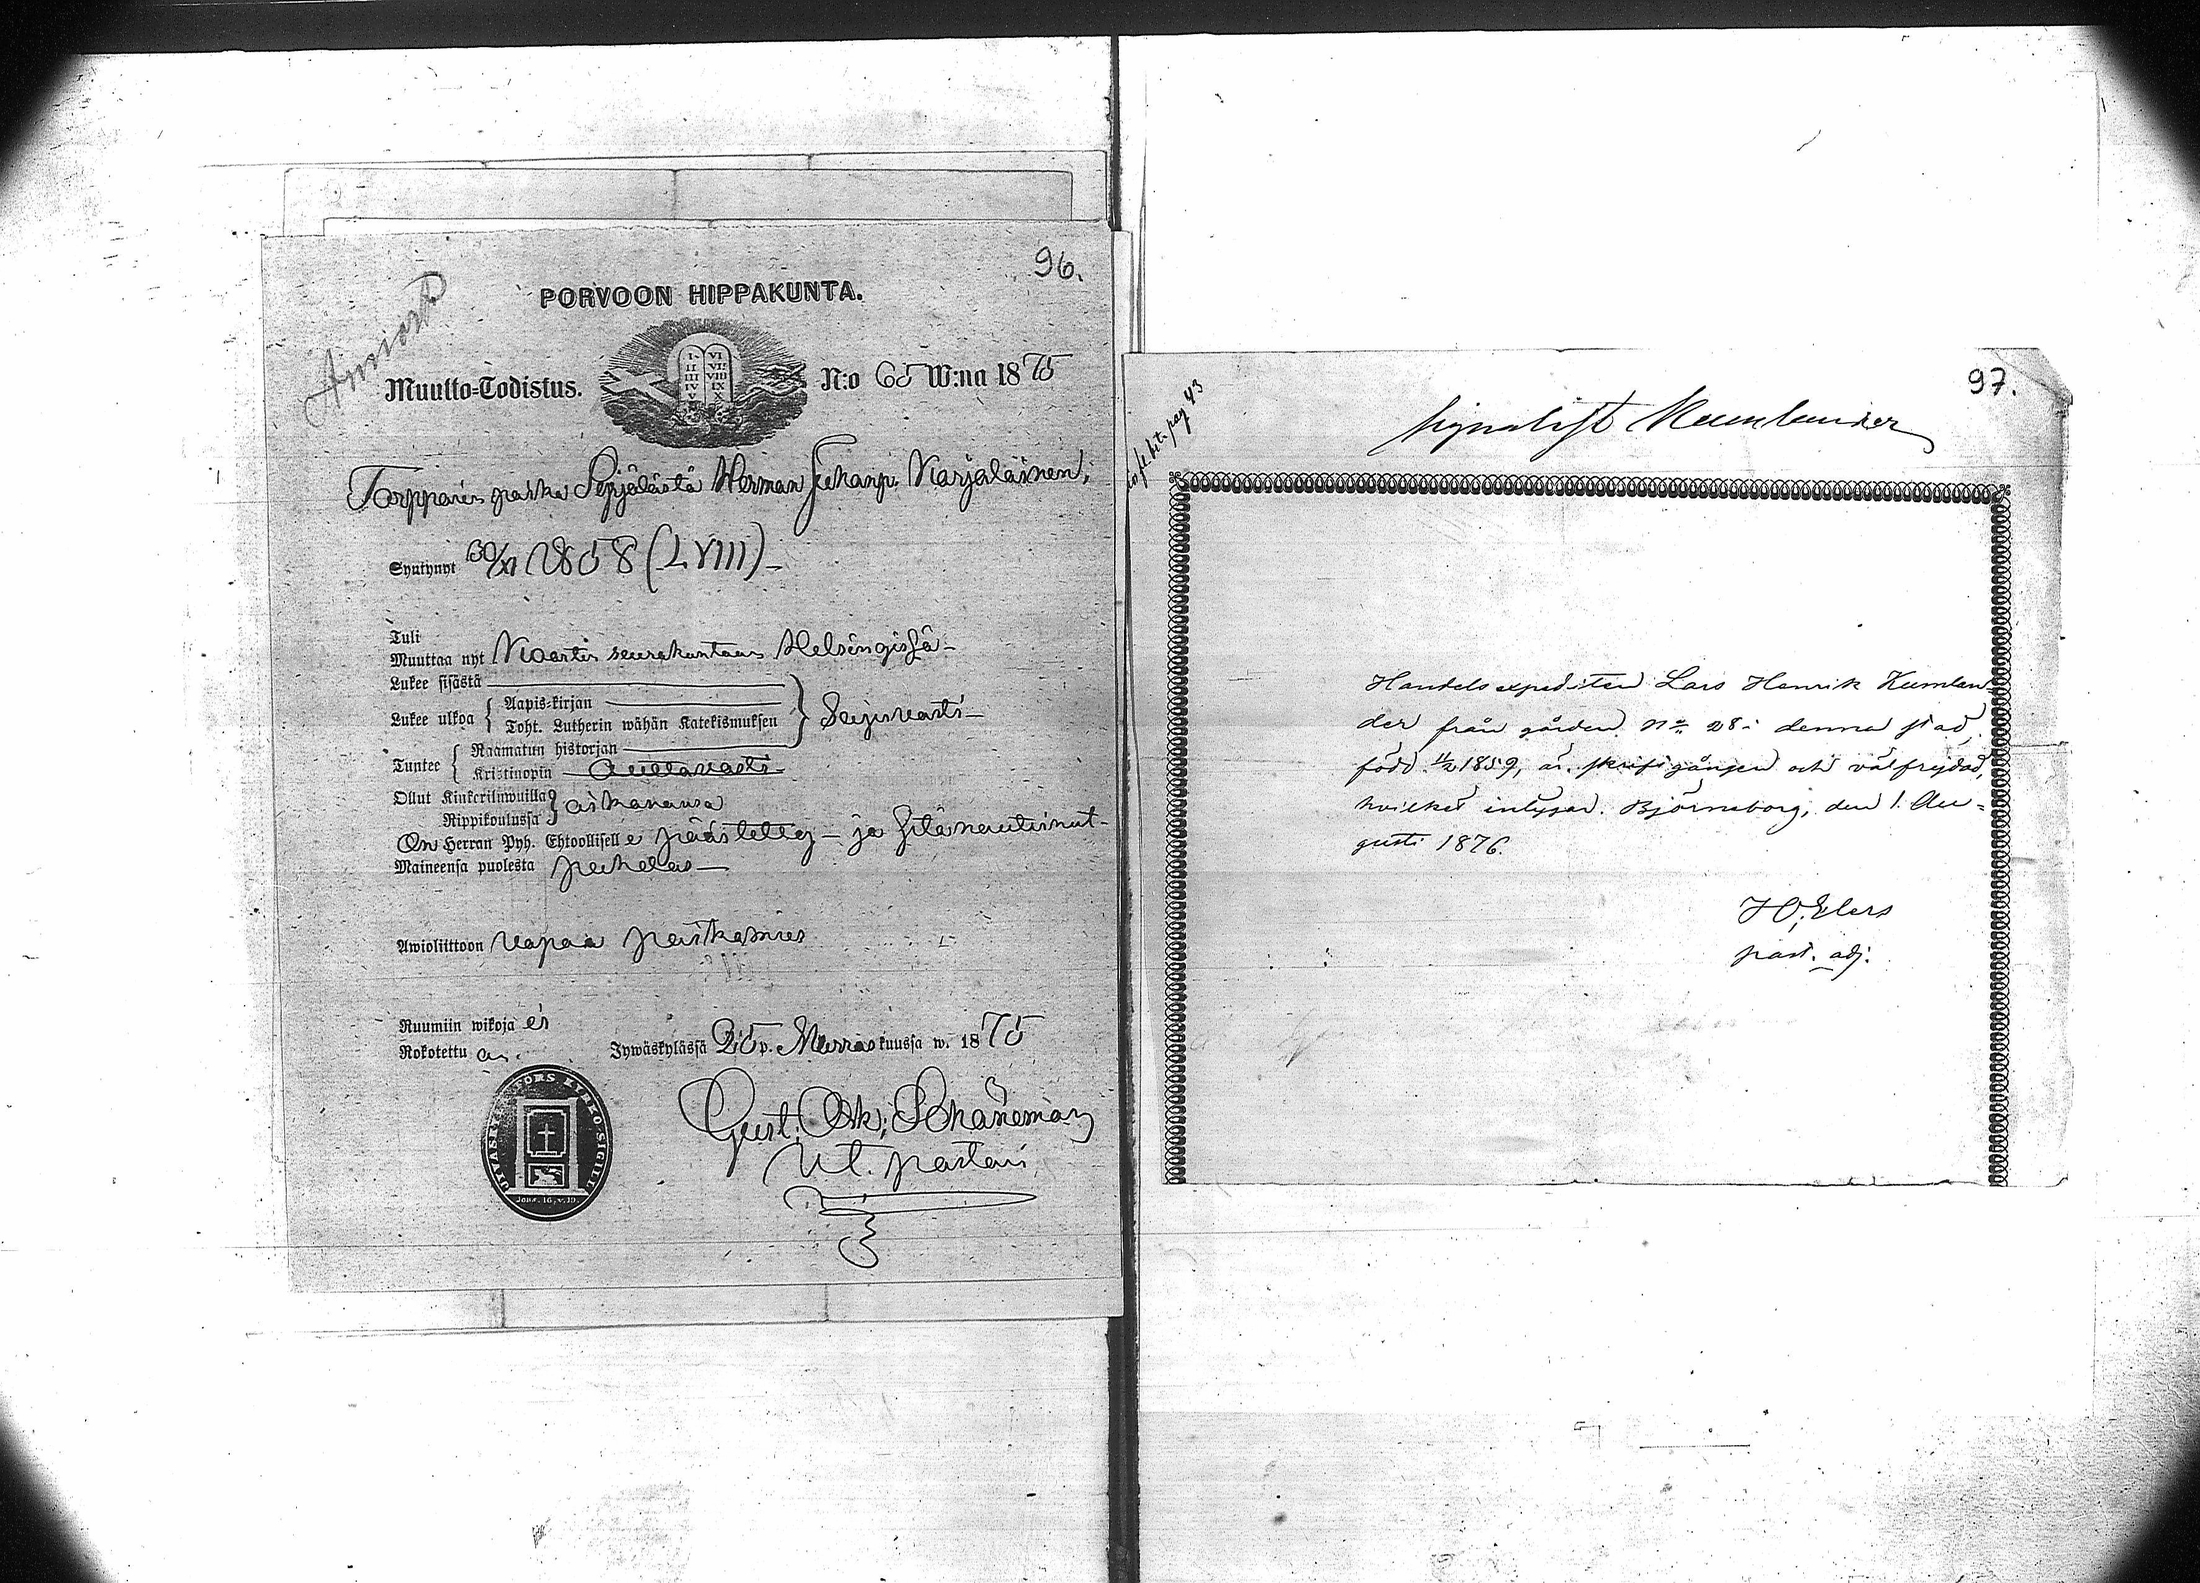 96.
PORVOON HIPPAKUNTA.
Muutto-Todistus.
N:o 65 W:na 1875
Torpparin poika Seppälästä Herman Juhanp. Karjalainen,
Syntynyt 30/XI 1858 (LVIII)
Tuli
Muuttaa nyt Kaartin seurakuntaan Helsingissä
Lukee sisästä
Lukee ulkoa { Aapis-kirjan
Toht. Lutherin wähän Katekismuksen
Tuntee { Raamatun historjan
Kristinopin auttavasti
Ollut Kinkerilluwuilla
Rippikoulussa } aikanansa
On Herran Pyh. Ehtoollisell e päästetty – ja sitä nautinnut –
Maineensa puolesta puhdas
Awioliittoon vapaa poikamies
Ruumiin wikoja ei
Rokotettu on.
Jywäskylässä 25 p. Marraskuussa w. 1875
Gust. Osk. Schöneman
vt. pastori
97.
Signalist Kumlander
Handelsexpediten Lars Henrik Kumlan-
der från gården No 28 i denna stad,
född 11/2 1859, är skriftgången och välfrejdad,
hvilket intygar. Björneborg, den 1. Au-
gusti 1876.
H O, Elers
past. adj.